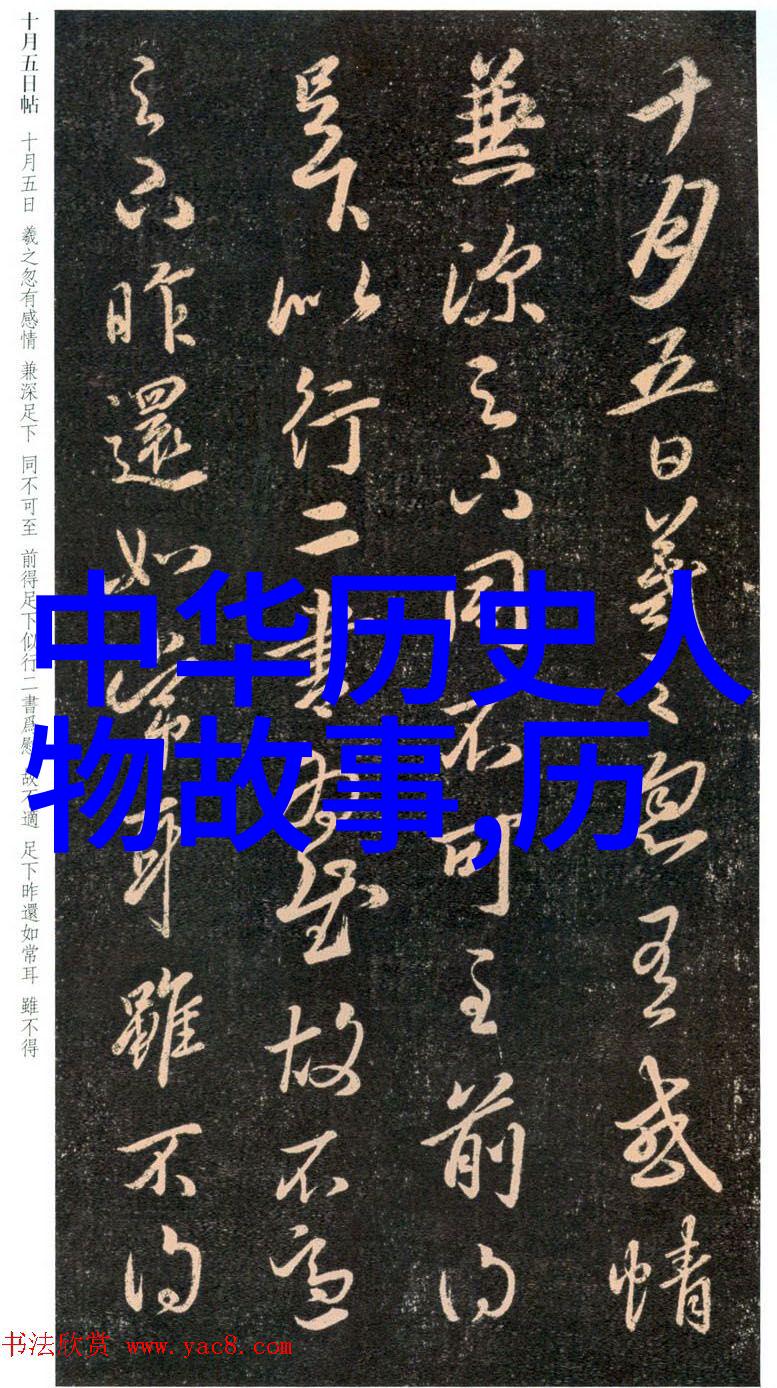 十月五日帖 十月五日 羲之忽有感情 兼深足下 同不可至 前得足下似行二書爲慰 故不適 足下昨還如常耳 雖不得
十月五日羲之忽有感情
兼深足下同不可至前得
足下以行二書為慰故不適
足下昨還如常耳雖不得
中华历史人
物故事,历
书法欣赏 www.yac8.com